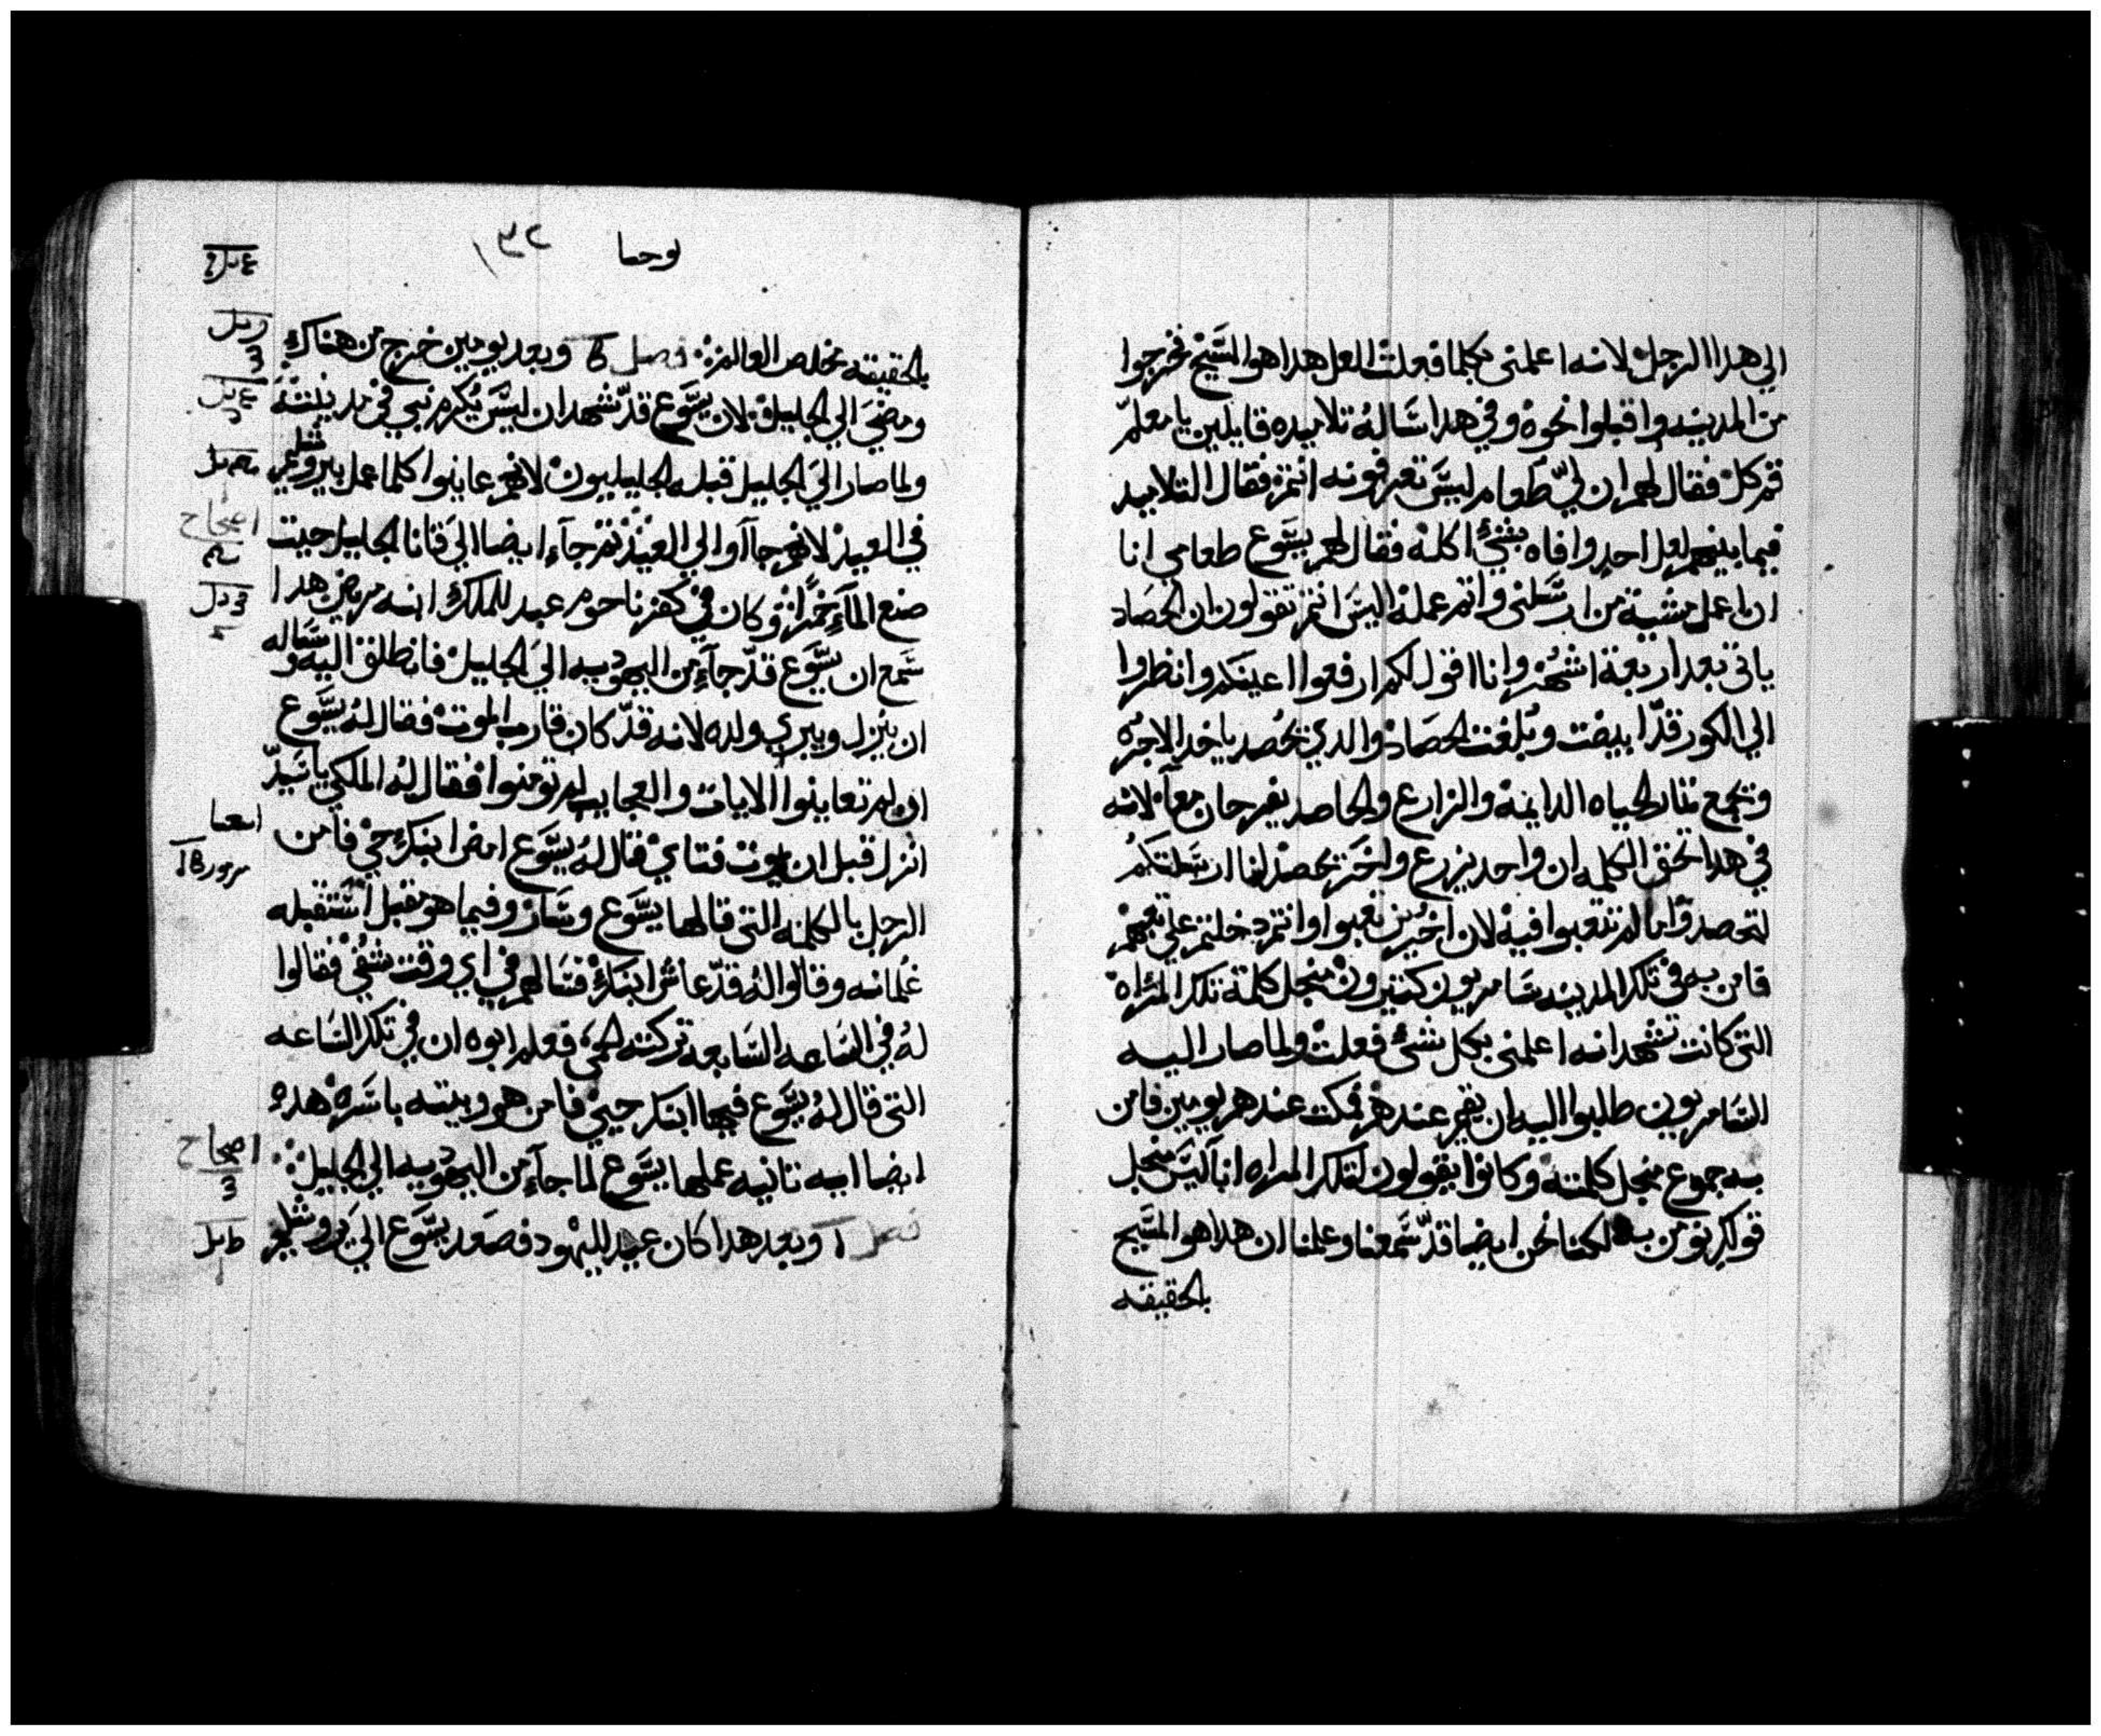 الي هدا الرجل لانه اعلمنى بكلما فعلت لعل هدا هو المسيح فخرجوا
من المدينه واقبلوا نحوه وفي هدا ساله تلاميده قايلين يا معلم
قم كل فقال لهم ان لي طعام ليس تعرفونه انتم فقال التلاميد
فيما بينهم لعل احد وافاه بشئ اكله فقال لهم يسوع طعامي انا
ان اعمل مشية من ارسلنى واتم عمله اليس انتم تقولون ان الحصاد
ياتى بعد اربعة اشهر وانا اقول لكم ارفعوا اعينكم وانظروا
الي الكور قد ابيضت وبلغت الحصاد والدي يحصد ياخد الاجره
ويجمع تمار الحياه الدايمة والزارع والحاصد يفرحان معا لانه
في هدا تحق الكلمه ان واحد يزرع واخر يحصد انا ارسلتكم
لتحصدوا ما لم تتعبوا فيه لان اخرين تعبوا وانتم دخلتم علي تعبهم
فامن به في تلك المدينه سامريون كتيرون منجل كلمة تلك المراه
التى كانت تشهد انه اعلمنى بكل شئ فعلت ولما صار اليه
السامريون طلبوا اليه ان يقيم عندهم فمكت عندهم يومين فامن
به جموع منجل كلمته وكانوا يقولون لتلك المراه انا ليس منجل
قولك نومن به لكننا نحن ايضا قد سمعنا وعلمنا ان هدا هو المسيح
بالحقيقه
يوحنا ١٣٢
بالحقيقه مخلص العالم فصل وبعد يومين خرج من هناك
ومضي الي الجليل لان يسوع قد شهد ان ليس يكرم نبي في مدينته
ولما صار الي الجليل قبله الجليليون لانهم عاينوا كلما عمل بيروشليم
في العيد لانهم جاآوا الي العيد تم جاء ايضا الي قانا الجليل حيت
صنع الماء خمرا وكان في كفرناحوم عبد للملك ابنه مريض هدا
سمع ان يسوع قد جاء من اليهوديه الي الجليل فانطلق اليه وساله
ان ينزل ويبري ولده لانه قد كان قارب الموت فقال له يسوع
ان لم تعاينوا الايات والعجايب لم تومنوا فقال له الملكي يا سيد
انزل قبل ان يموت فتاي قال له يسوع امض ابنك حي فامن
الرجل بالكلمه التى قالها يسوع وسار وفيما هو مقبل استقبله
غلمانه وقالوا له قد عاش ابنك فسالهم في اي وقت شفي فقالوا
له في الساعه السابعه تركته الحمي فعلم ابوه ان في تلك الساعه
التى قال له يسوع فيها ابنك حيي فامن هو وبيته باسره هده
ايضا ايه تانيه عملها يسوع لما جاء من اليهوديه الي الجليل
فصل وبعد هدا كان عيد لليهود فصعد يسوع الي يروشليم
اصحاح
اصحاح